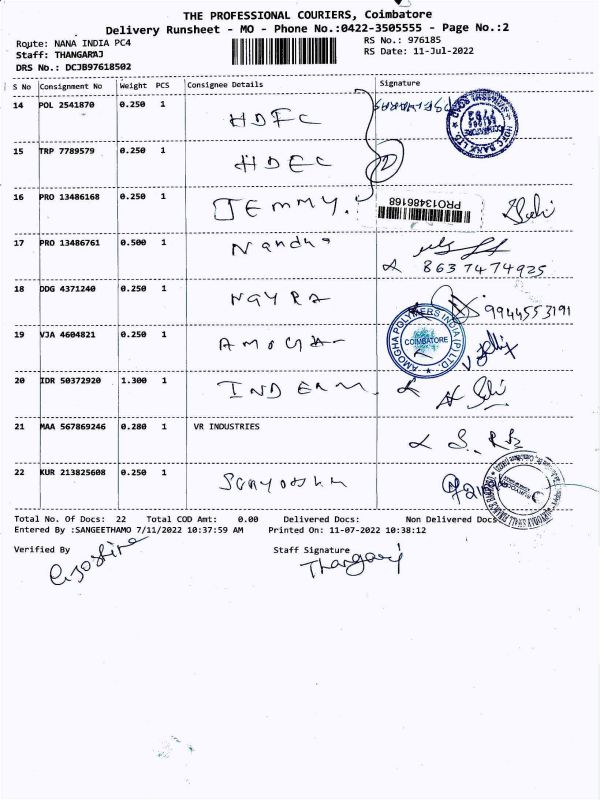 THE PROFESSIONAL COURIERS, Coimbatore
Delivery Runsheet - MO - Phone No.:0422-3505555 - Page No.:2
Route: NANA INDIA PC4 RS No.: 976185
Staff: THANGARAJ RS Date: 11-Jul-2022
DRS No.: DCJB97618502
S No Consignment No Weight PCS Consignee Details Signature
14 POL 2541870 0.250 1 HDFC
HDFC BANK LTD. COIMBATORE
15 TRP 7789579 0.250 1 HDFC
16 PRO 13486168 0.250 1 JEMMY. PRO13486168
17 PRO 13486761 0.500 1 Nandha
8637474925
18 DDG 4371240 0.250 1 NAYRA 9944553191
19 VJA 4604821 0.250 1 AMOGHA
AMOGHA POLYMERS INDIA (P) LTD. COIMBATORE
20 IDR 50372920 1.300 1
21 MAA 567869246 0.280 1 VR INDUSTRIES
22 KUR 213825608 0.250 1
Total No. Of Docs: 22 Total COD Amt: 0.00 Delivered Docs: Non Delivered Docs
Entered By :SANGEETHAMO 7/11/2022 10:37:59 AM Printed On: 11-07-2022 10:38:12
Verified By Staff Signature
Thangaraj